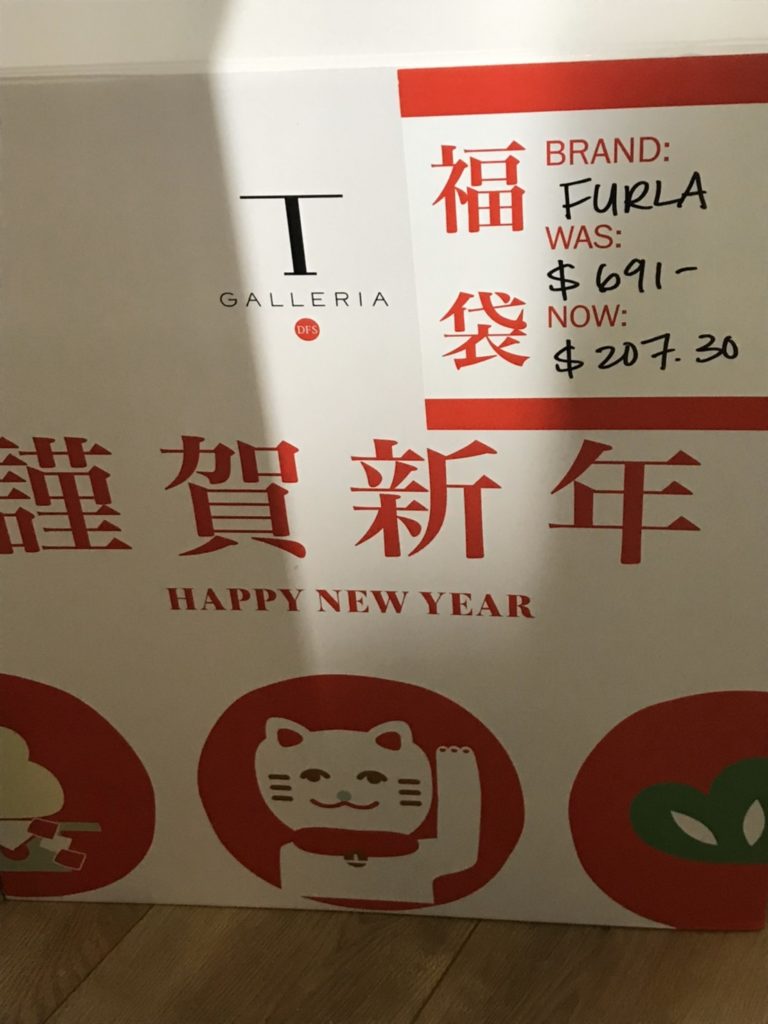 T
GALLERIA
DFS
福袋
BRAND:
FURLA
WAS:
$691-
NOW:
$207.30
謹賀新年
HAPPY NEW YEAR